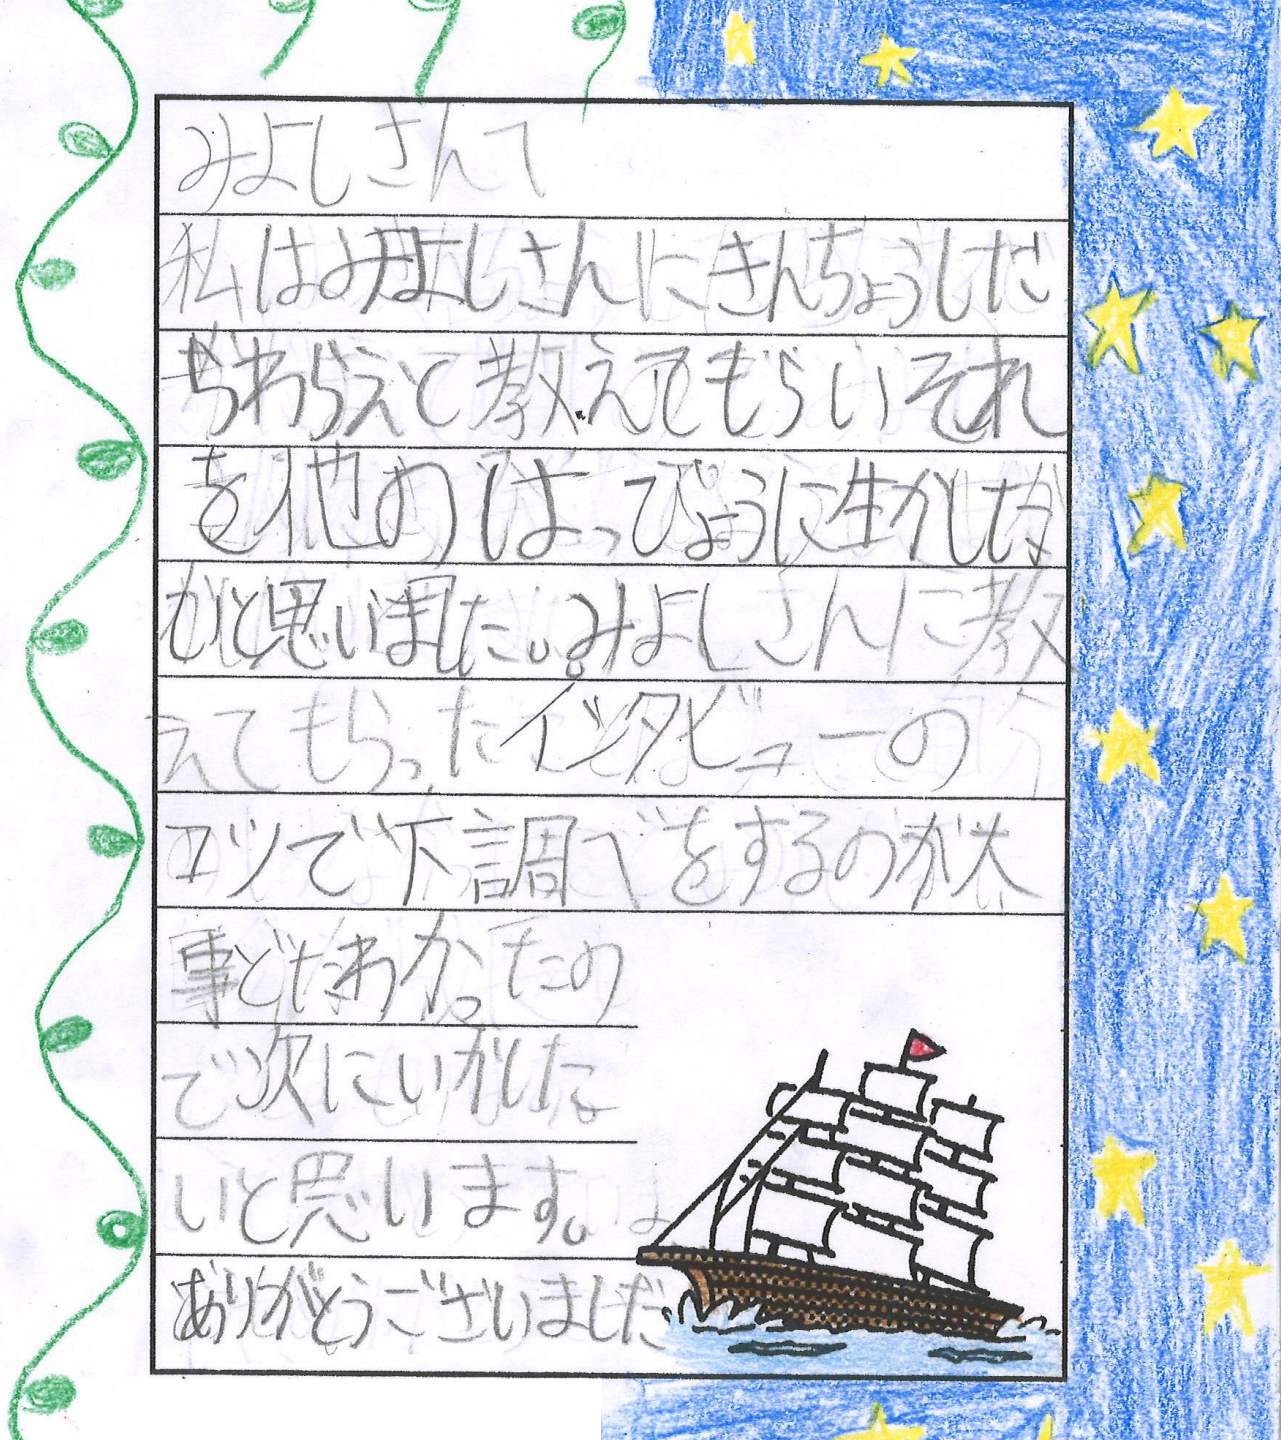 みよしさんへ
私はみよしさんにきんちょうした
らわらえと教えてもらいそれ
を他のはっぴょうに生かした
いと思いました。みよしさんに教
えてもらったインタビューの
コツで下調べをするのが大
事だとわかったの
で次にいかした
いと思います。
ありがとうございました